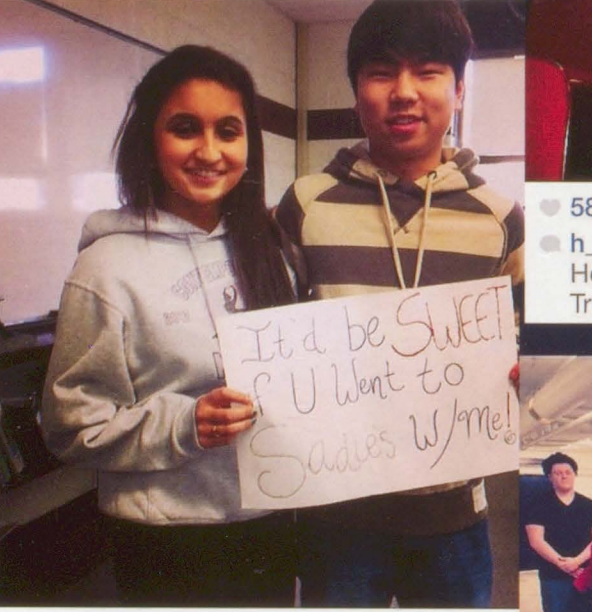 It'd be SWEET
f U Went to
Sadies W/Me!
58
h_
He
Tr